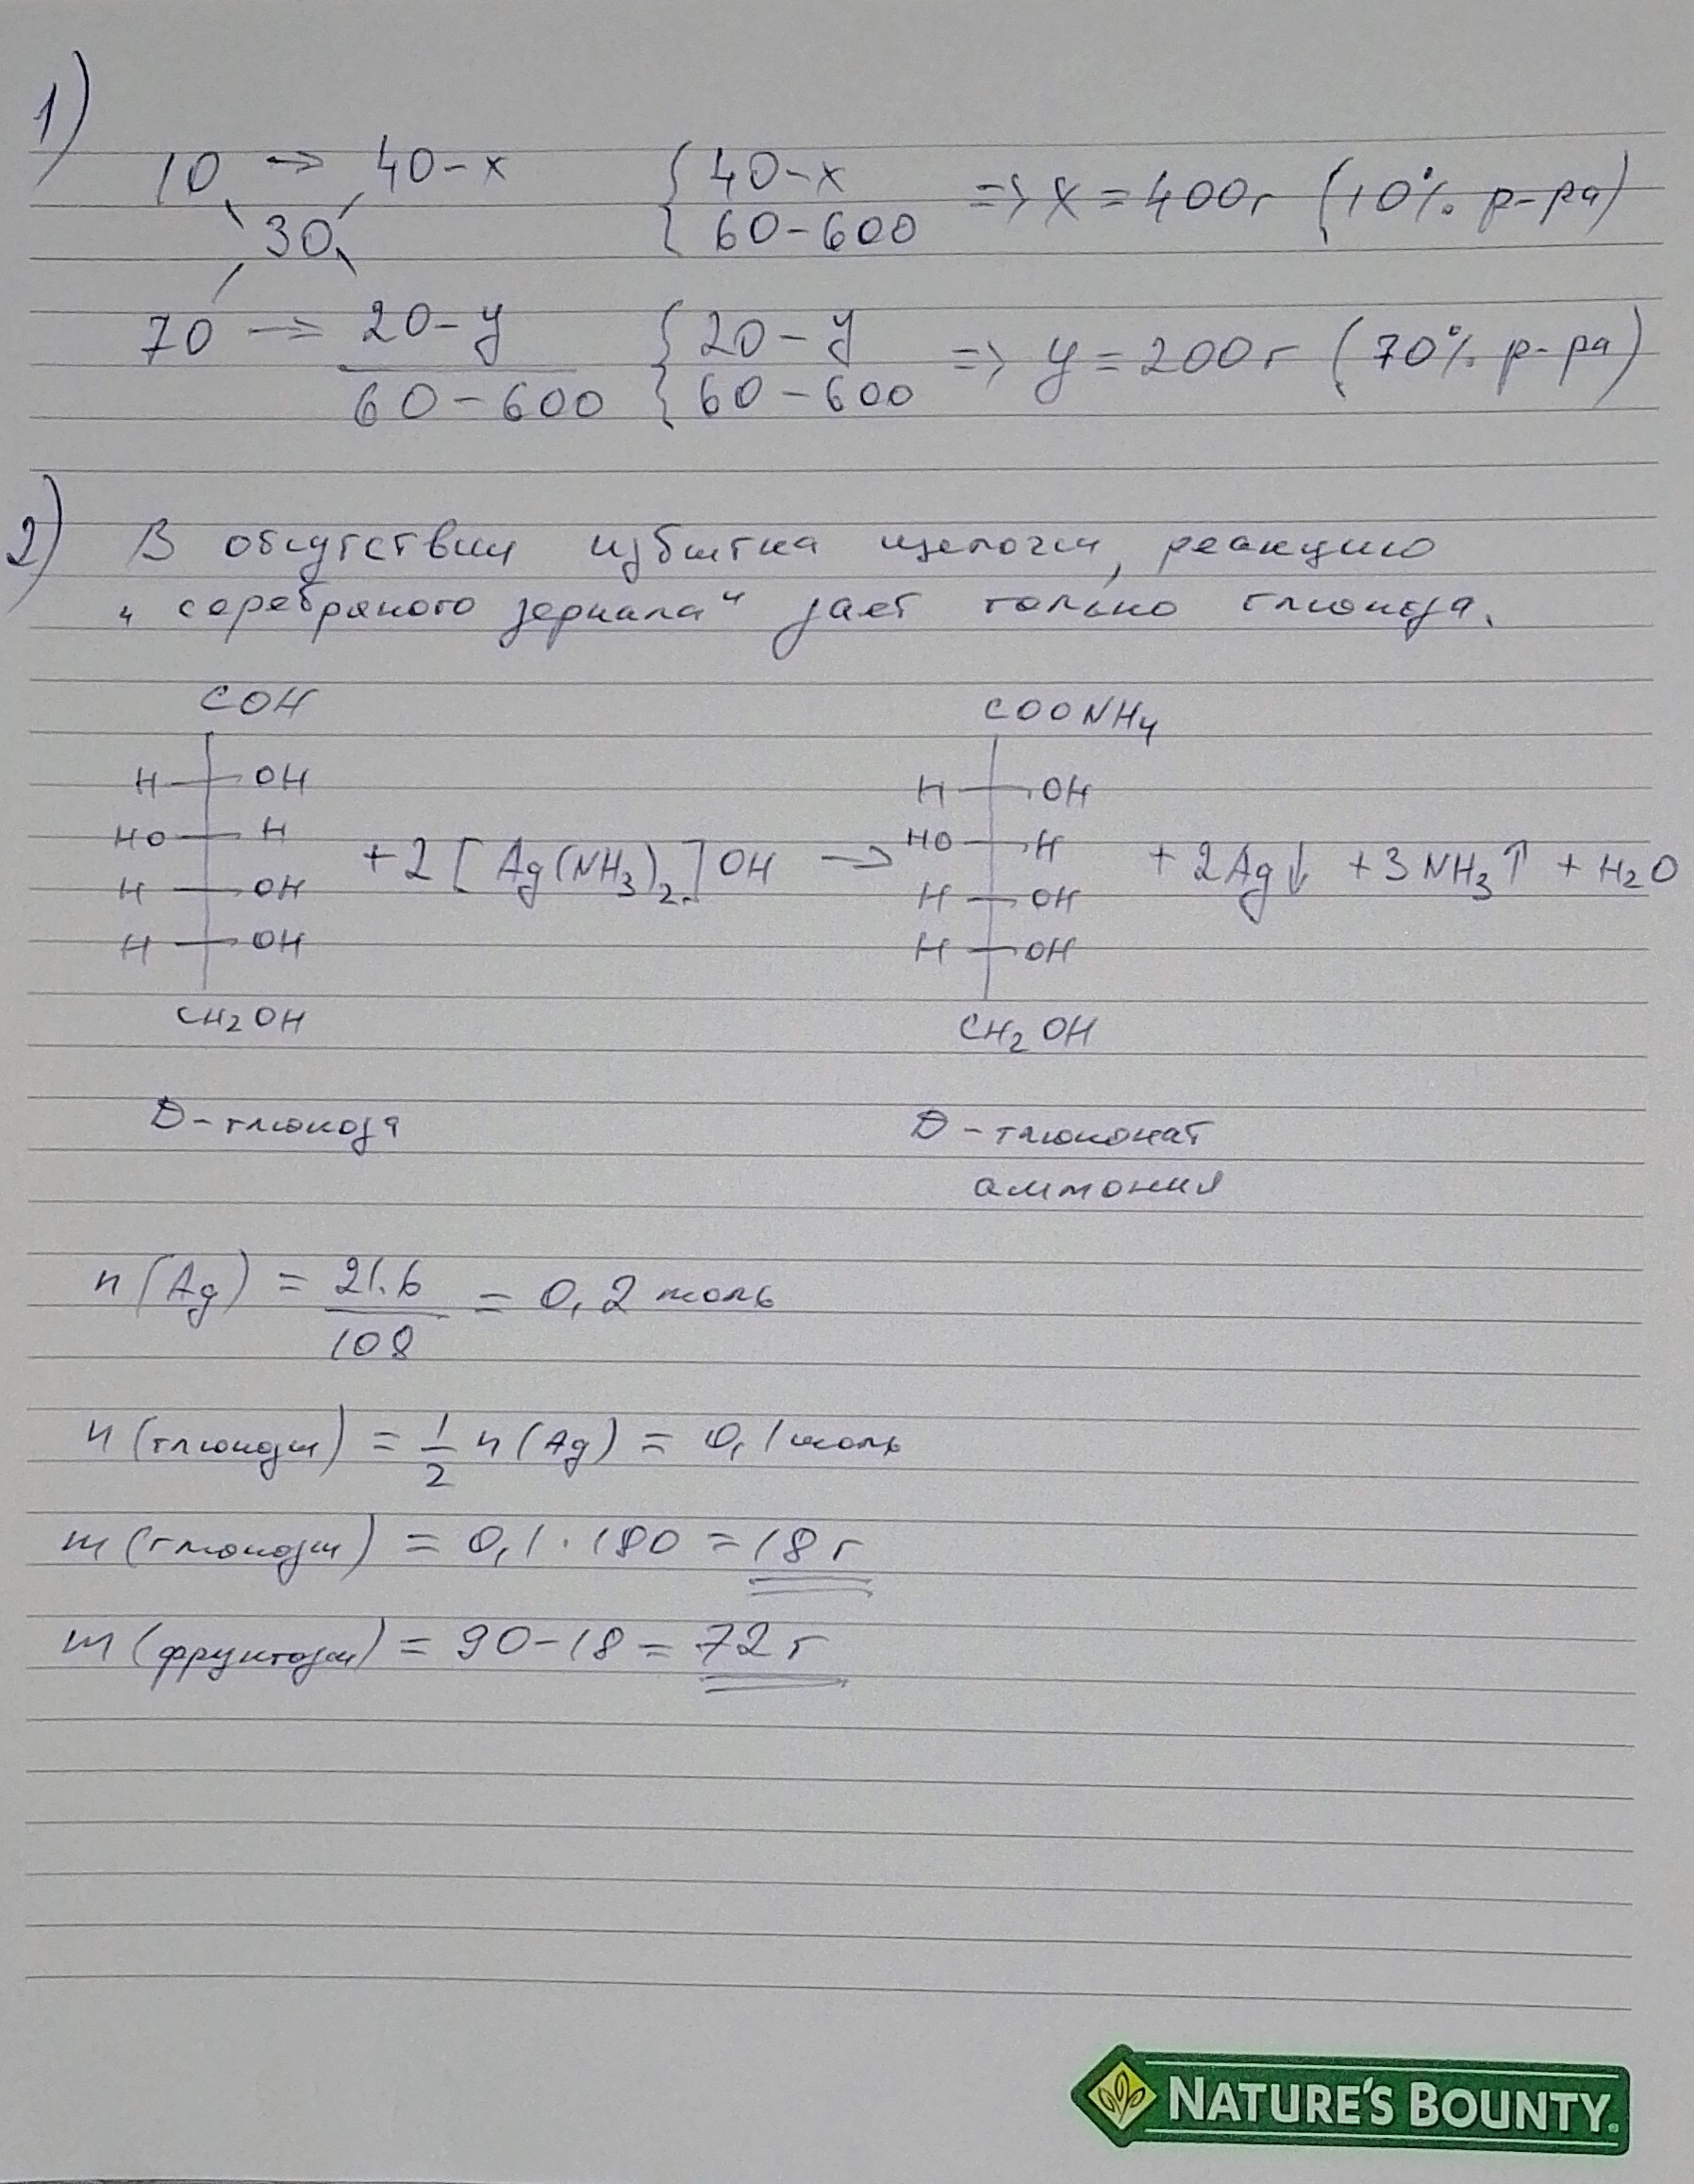 1)
10 → 40-x { 40-x => x = 400г (10% р-ра)
30 { 60-600
70 → 20-y { 20-y => y = 200г (70% р-ра)
60-600 { 60-600
2) В отсутствии избытка щелочи, реакцию
„серебряного зеркала" дает только глюкоза.
COH COONH4
H OH H OH
HO H + 2 [Ag(NH3)2]OH → HO H + 2Ag↓ + 3NH3↑ + H2O
H OH H OH
H OH H OH
CH2OH CH2OH
D-глюкоза D-глюконат
аммония
n(Ag) = 21.6 / 108 = 0,2 моль
n(глюкозы) = 1/2 n(Ag) = 0,1 моль
m(глюкозы) = 0,1·180 = 18 г
m(фруктозы) = 90-18 = 72 г
NATURE'S BOUNTY®